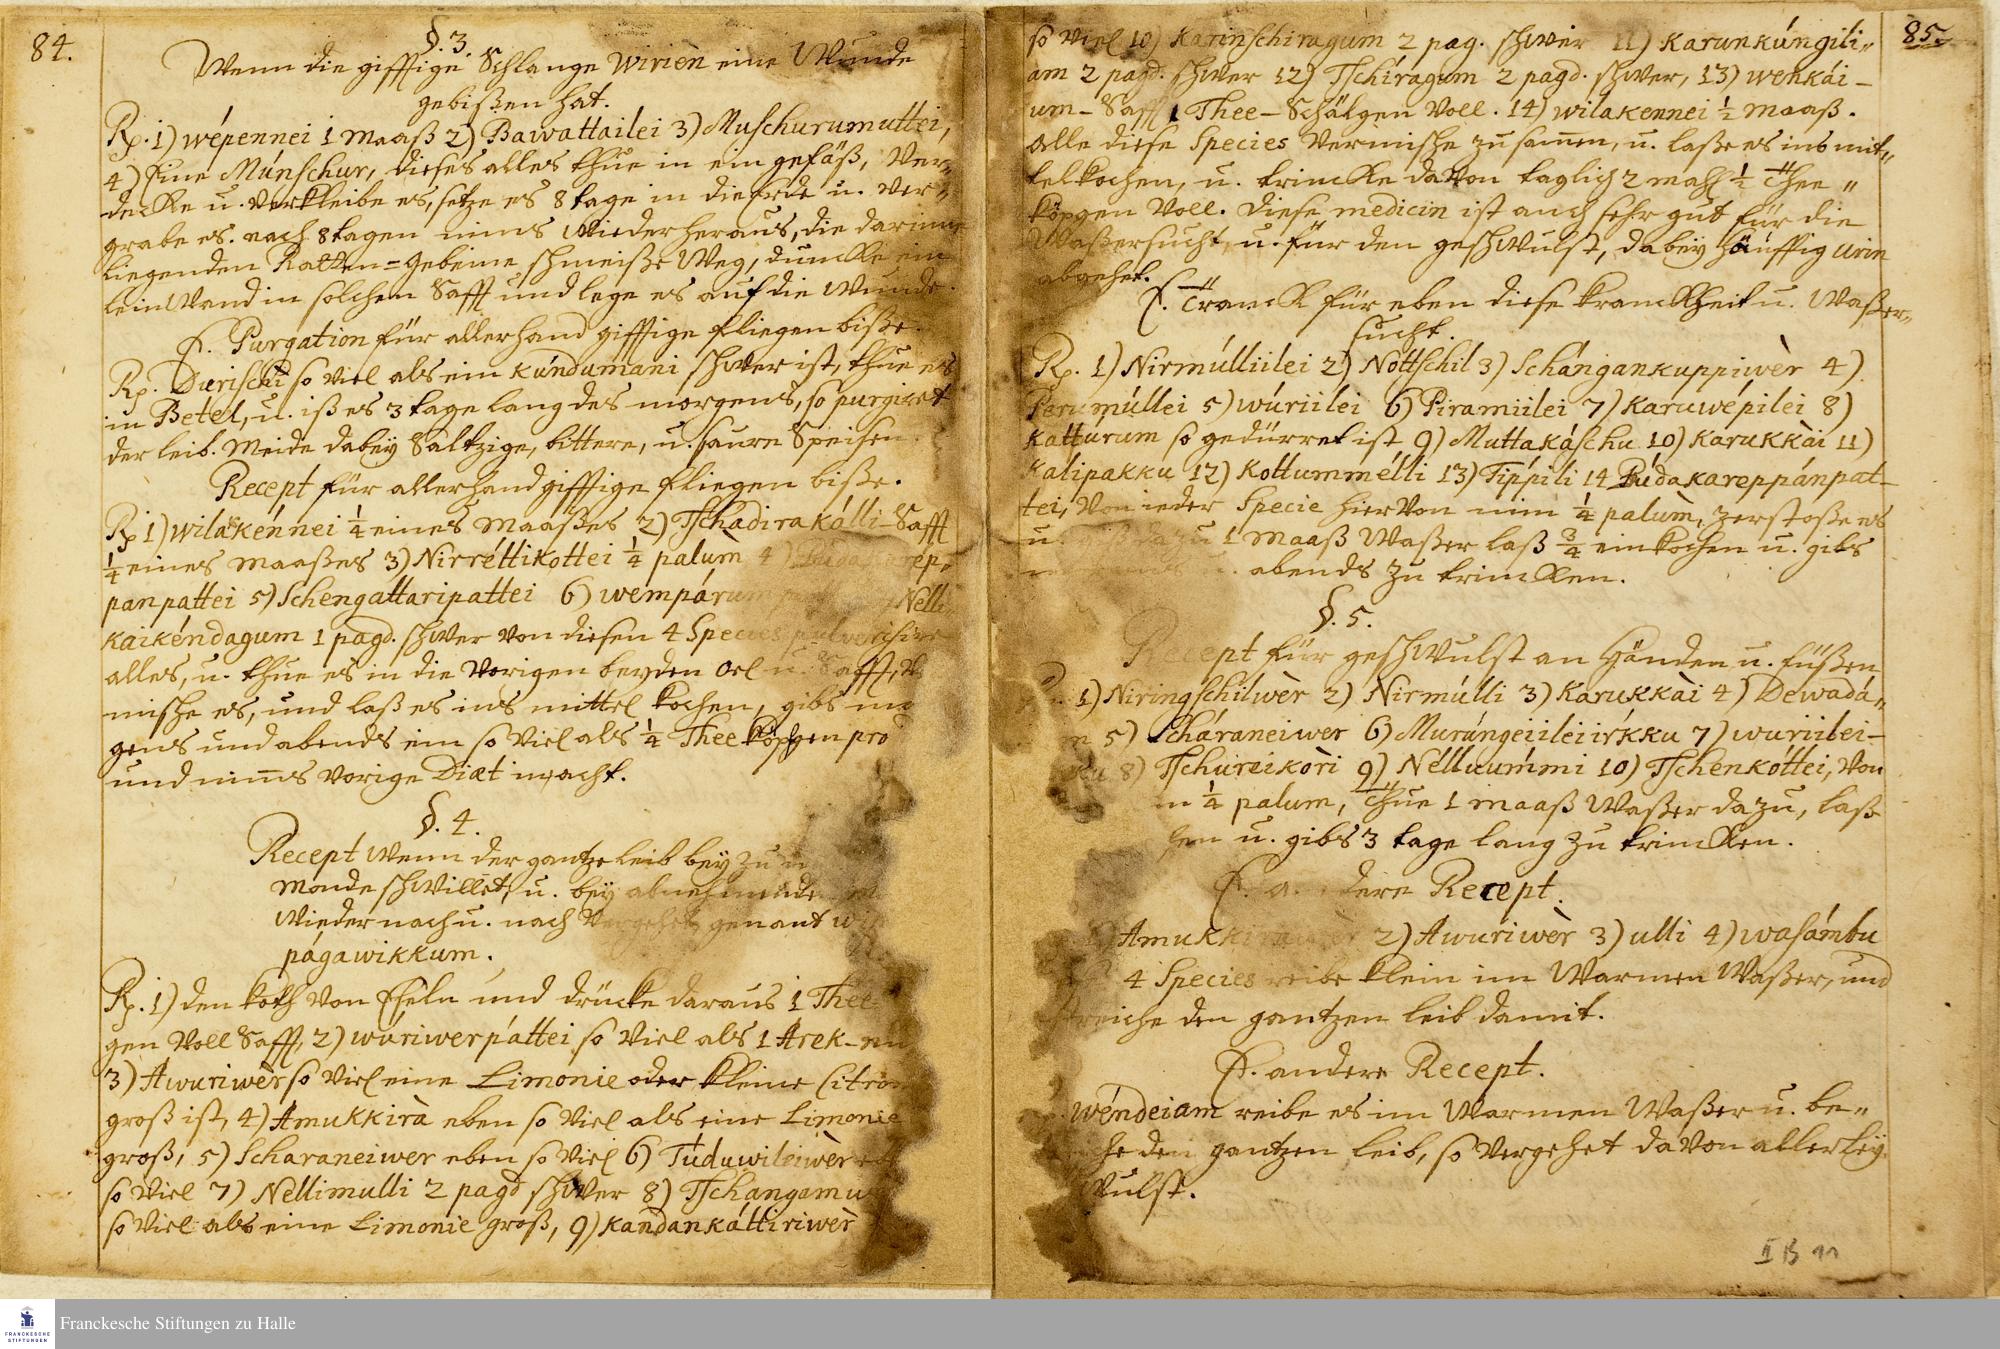 84.
§. 3.
Wenn die gifftige Schlange Wirien eine Wunde
gebißen hat.
Rp. 1) wépennei 1 Maaß 2) Bawattailei 3) Muschurumuttei,
4) Eine Múnschur, dieses alles thue in ein gefäß, ver-
decke u. verkleibe es, setze es 8 tage in die Erde u. ver-
grabe es. nach 8 tagen nims wieder heraus, die darinne
liegenden Ratten=gebeine schmeiße weg, duncke ein
leinwand in solchen Safft und lege es auf die Wunde.
Purgation für allerhand gifftige fliegen biße.
Rp. Durischi so viel als ein kúndumani schwer ist, thue es
in Betel, u. iß es 3 tage lang des morgens, so purgiret
der leib. Meide dabey Saltzige, bittere, u. saure Speisen.
Recept für allerhand gifftige fliegen biße.
Rp 1) wilakénnei ¼ eines Maaßes 2) Tschadirakálli-Safft
¼ eines Maaßes 3) Nirréttikottei ¼ palum 4)
panpattei 5) Schengattaripattei 6) wempárum Nelli
kaikéndagum 1 pagd. schwer von diesen 4 Species pulverisire
alles, u. thue es in die vorigen beyden Oel u. Safft,
mische es, und laß es ins mittel kochen, gibs
gens und abends ein so viel als ¼ Thee köpgen pro
und nims vorige Diæt in acht.
§. 4.
Recept wenn der gantze leib bey zu
monde schwillet, u. bey abnehmenden
wieder nach u. nach vergehet, genant
págawikkum.
Rp. 1) den koth von Eseln und drücke daraus 1 Thee
gen voll Safft, 2) wúriwerpáttei so viel als 1 Arek-
3) Awuriwèr so viel eine Limonie oder kleine Citron
groß ist, 4) Amukkirà eben so viel als eine Limonie
groß, 5) Scharaneiwer eben so viel 6) Túduwileiwèr
so viel 7) Nellimulli 2 pagd schwer 8) Tschangamu
so viel als eine Limonie groß, 9) kandankáttiriwèr
85.
so viel 10) karinschiragum 2 pag. schwer 11) karunkúngili-
am 2 pagd. schwer 12) Tschíragum 2 pagd. schwer, 13) wenkái-
um-Safft 1 Thee-Schälgen voll. 14) wilakennei ½ maaß.
alle diese Species vermische zusamen, u. laße es ins mit-
tel kochen, u. trincke davon täglich 2 mahl ½ Thee
köpgen voll. Diese medicin ist auch sehr gut für die
Waßersucht, u. für den geschwulst, dabey häuffig urin
abgehet.
Tranck für eben diese kranckheit u. Waßer-
sucht.
Rp. 1) Nirmúlliilei 2) Nottschil 3) Schángankuppiwèr 4)
Perumúllei 5) wúriilei 6) Piramiilei 7) karuwépilei 8)
kattúrum so gedürret ist 9) Muttakáschu 10) karukkài 11)
kálipakku 12) kottummélli 13) Tippíli 14 Púdakareppánpat-
tei, von ieder Specie hiervon nim ¼ palùm, zerstoße es
u. dazu 1 maaß Waßer laß ¾ einkochen u. gibs
abends zu trincken.
§. 5.
Recept für geschwulst an Händen u. füßen
1) Niringschilwèr 2) Nirmúlli 3) karukkài 4) Dewadá-
5) Scháraneiwer 6) Murúngeiileiirkku 7) wuriilei-
8) Tschureikòri 9) Nélluúmmi 10) Tschénkóttei, von
¼ palum, thue 1 maaß Waßer dazu, laß
u. gibs 3 tage lang zu trincken.
Recept.
2) Awúriwèr 3) ulli 4) wasámbu
4 Species reibe klein im Warmen Waßer, und
streiche den gantzen leib damit.
andere Recept.
wéndeiam reibe es im Warmen Waßer u. be-
den gantzen leib, so vergehet davon allerley
II B 11
FRANCKESCHE
STIFTUNGEN
Franckesche Stiftungen zu Halle